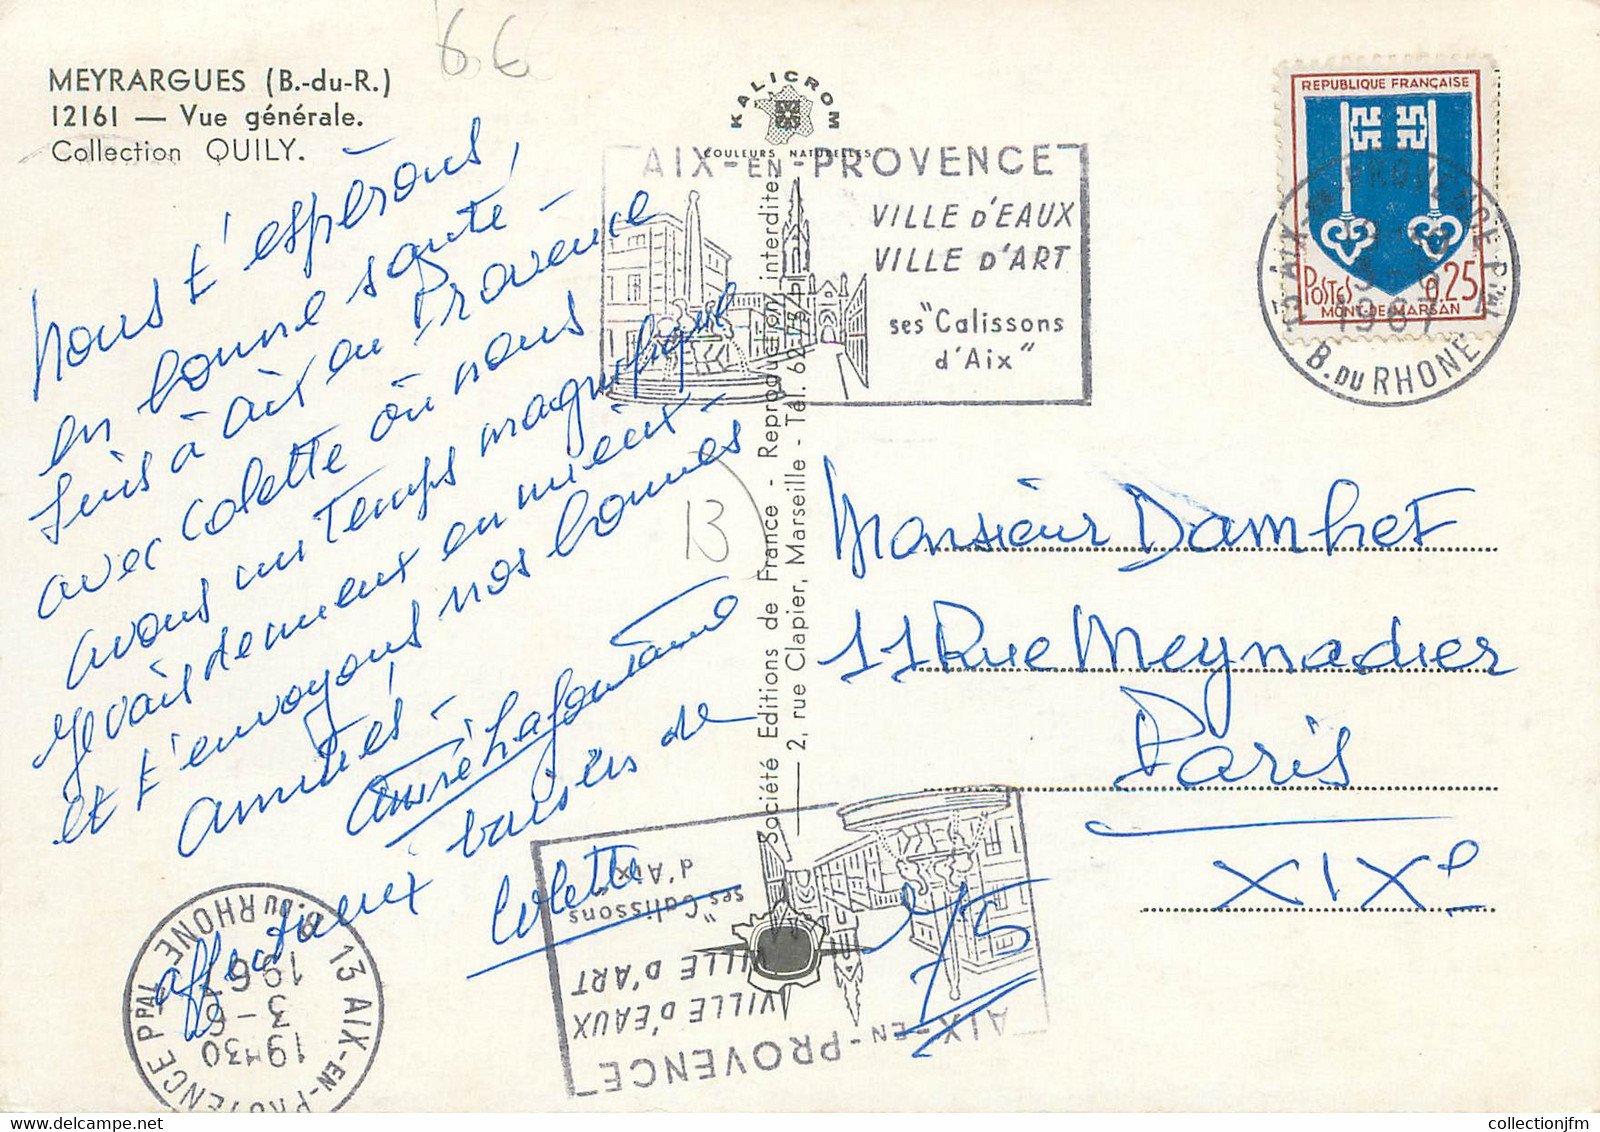 66
MEYRARGUES (B.-du-R.)
12161 — Vue générale.
Collection QUILY.
KALICROM
COULEURS NATURELLES
Nous t'espérons,
en bonne santé -
suis à aix en Provence
avec Colette où nous
avons un temps magnifique
je vais de mieux en mieux -
et t'envoyons nos bonnes
amitiés -
André Lafontaine
affectueux baisers de
Colette
13
Société Editions de France - Reproduction interdite
2, rue Clapier, Marseille - Tél. 62-
AIX-EN-PROVENCE
VILLE D'EAUX
VILLE D'ART
ses "Calissons
d'Aix"
REPUBLIQUE FRANÇAISE
POSTES 0,25
MONT-DE-MARSAN
13 AIX-EN-PROVENCE PPAL
1967
B. DU RHONE
Monsieur Damhet
11 Rue Meynadier
Paris
XIXe
AIX-EN-PROVENCE
VILLE D'EAUX
VILLE D'ART
ses "Calissons
d'Aix"
13 AIX-EN-PROVENCE PPAL
19H30
3-6
1967
B. DU RHONE
collectionjfm